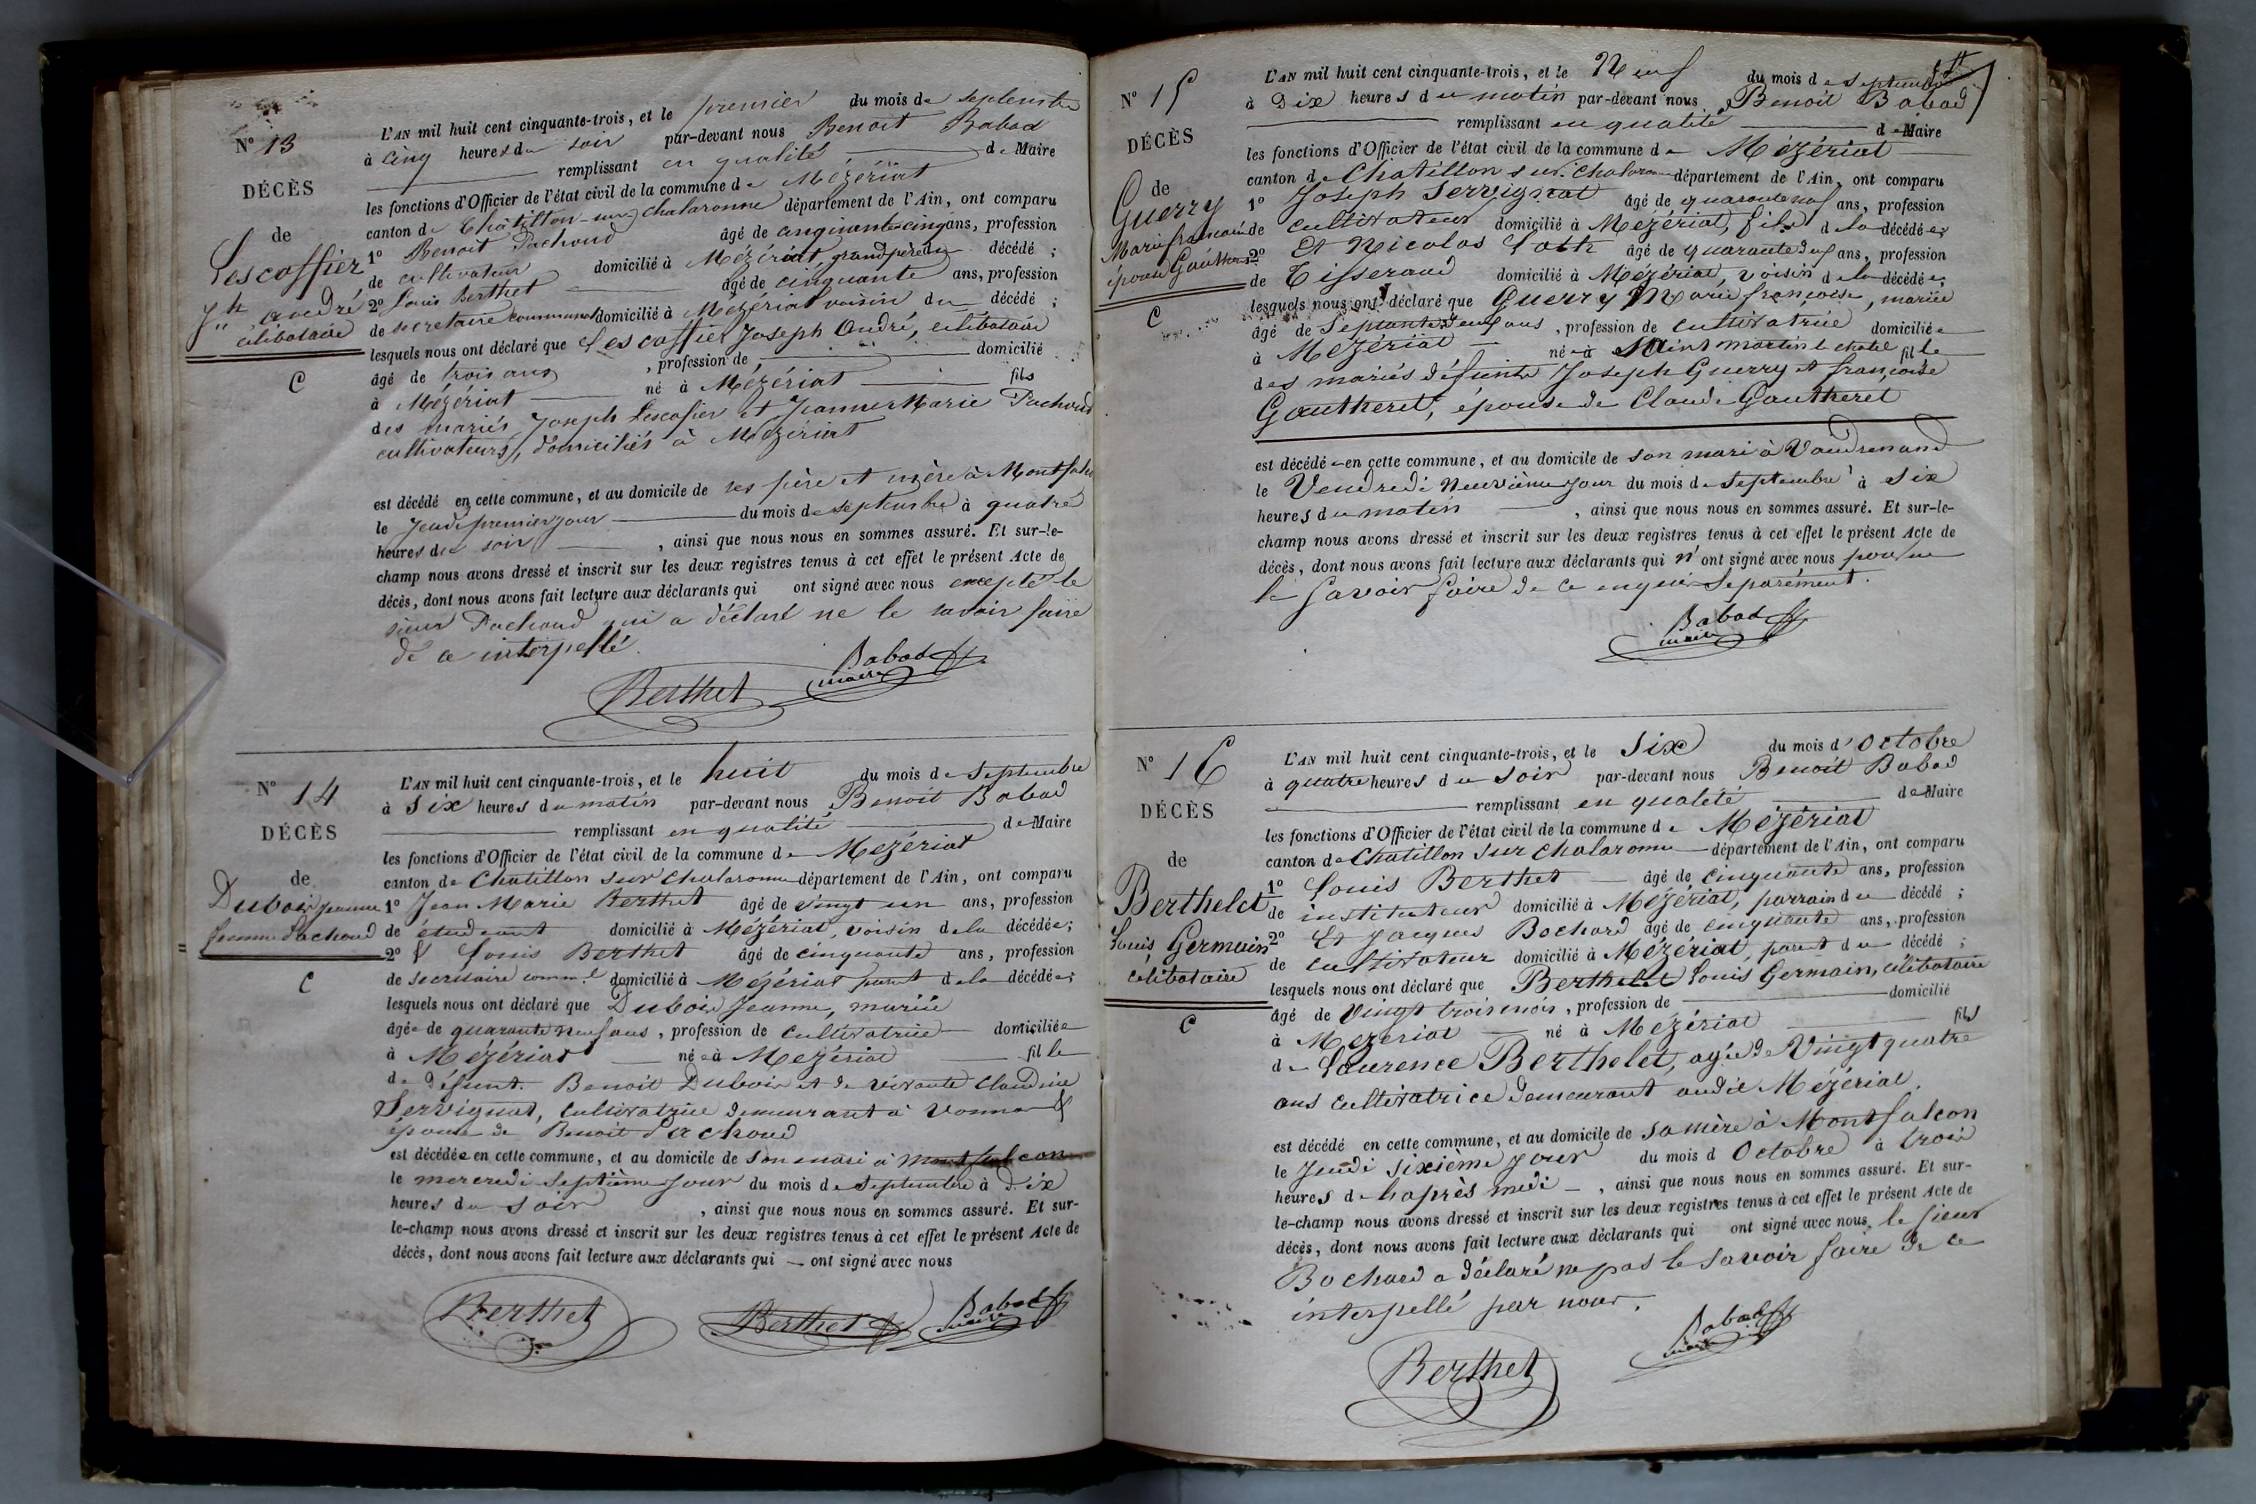 N° 13
DÉCÈS
de
Lescoffier
Jh andré
célibataire
C
L'AN mil huit cent cinquante-trois, et le premier du mois de septembre
à cinq heures du soir par-devant nous Benoit Babad
remplissant en qualité de Maire
les fonctions d'Officier de l'état civil de la commune de Mézériat
canton de Châtillon-sur-chalaronne département de l'Ain, ont comparu
1° Benoit Pachoud âgé de cinquante cinq ans, profession
de cultivateur domicilié à Mézériat, grand père du décédé ;
2° Louis Berthet âgé de cinquante ans, profession
de secretaire communal domicilié à Mézériat voisin du décédé ;
lesquels nous ont déclaré que Lescoffier Joseph André, célibataire
âgé de trois ans , profession de domicilié
à Mézériat né à Mézériat fils
des mariés Joseph Lescofier et Jeanne Marie Pachoud
cultivateurs, domiciliés à Mézériat
est décédé en cette commune, et au domicile de ses père et mère à Montfalcon
le Jeudi premier jour du mois de septembre à quatre
heures du soir , ainsi que nous nous en sommes assuré. Et sur-le-
champ nous avons dressé et inscrit sur les deux registres tenus à cet effet le présent Acte de
décès, dont nous avons fait lecture aux déclarants qui ont signé avec nous excepté le
sieur Pachoud qui a déclaré ne le savoir faire
de ce interpellé.
Berthet Babad
maire
N° 14
DÉCÈS
de
Dubois Jeanne
femme Pachoud
C
L'AN mil huit cent cinquante-trois, et le huit du mois de Septembre
à six heures du matin par-devant nous Benoit Babad
remplissant en qualité de Maire
les fonctions d'Officier de l'état civil de la commune de Mézériat
canton de Chatillon sur Chalaronne département de l'Ain, ont comparu
1° Jean Marie Berthet âgé de vingt un ans, profession
de étudiant domicilié à Mézériat, voisin de la décédée ;
2° & Louis Berthet âgé de cinquante ans, profession
de secrétaire comm.l domicilié à Mézériat parent de la décédée ;
lesquels nous ont déclaré que Dubois Jeanne, mariée
âgée de quarante neuf ans , profession de cultivatrice domiciliée
à Mézériat née à Mézériat fille
de défunt Benoit Dubois et de vivante Claudine
Servignat, cultivatrice demeurant à Vonnas &
épouse de Benoit Pachoud
est décédée en cette commune, et au domicile de son mari à Montfalcon
le mercredi septième jour du mois de septembre à dix
heures du soir , ainsi que nous nous en sommes assuré. Et sur-
le-champ nous avons dressé et inscrit sur les deux registres tenus à cet effet le présent Acte de
décès, dont nous avons fait lecture aux déclarants qui ont signé avec nous
Berthet Berthet Babad
maire
N° 15
DÉCÈS
de
Guerry
Marie françoise
épouse Gautheret
C
L'AN mil huit cent cinquante-trois, et le Neuf du mois de Septembre
à Dix heures du matin par-devant nous Benoit Babad
remplissant en qualité de Maire
les fonctions d'Officier de l'état civil de la commune de Mézériat
canton de Chatillon sur Chalaronne département de l'Ain, ont comparu
1° Joseph Servignat âgé de quarante neuf ans, profession
de cultivateur domicilié à Mézériat, fils de la décédée ;
2° Et Nicolas âgé de quarante ans, profession
de Tisserand domicilié à Mézériat, voisin de la décédée ;
lesquels nous ont déclaré que Guerry Marie françoise, mariée
âgé de Septante deux ans , profession de cultivatrice domiciliée
à Mézériat née à Saint Martin le chatel fille
des mariés défunts Joseph Guerry et françoise
Gautheret, épouse de Claude Gautheret
est décédée en cette commune, et au domicile de son mari à Vaudrenand
le Vendredi Neuvième jour du mois de Septembre à six
heures du matin , ainsi que nous nous en sommes assuré. Et sur-le-
champ nous avons dressé et inscrit sur les deux registres tenus à cet effet le présent Acte de
décès, dont nous avons fait lecture aux déclarants qui n'ont signé avec nous pour ne
le Savoir faire de ce enquis séparément.
Babad
maire
N° 16
DÉCÈS
de
Berthelet
Louis Germain
célibataire
C
L'AN mil huit cent cinquante-trois, et le Six du mois d'Octobre
à quatre heures du soir par-devant nous Benoit Babad
remplissant en qualité de Maire
les fonctions d'Officier de l'état civil de la commune de Mézériat
canton de Chatillon sur Chalaronne département de l'Ain, ont comparu
1° Louis Berthet âgé de cinquante ans, profession
de instituteur domicilié à Mézériat, parrain du décédé ;
2° Et Jacques Bochard âgé de cinquante ans, profession
de cultivateur domicilié à Mézériat, parent du décédé ;
lesquels nous ont déclaré que Berthelet Louis Germain, célibataire
âgé de Vingt trois mois , profession de domicilié
à Mézériat né à Mézériat fils
de Laurence Berthelet, agée de Vingt quatre
ans cultivatrice demeurant audit Mézériat.
est décédé en cette commune, et au domicile de sa mère à Montfalcon
le Jeudi sixième jour du mois d Octobre à trois
heures de l'après midi , ainsi que nous nous en sommes assuré. Et sur-
le-champ nous avons dressé et inscrit sur les deux registres tenus à cet effet le présent Acte de
décès, dont nous avons fait lecture aux déclarants qui ont signé avec nous, le sieur
Bochard a déclaré ne pas le savoir faire de ce
interpellé par nous.
Berthet Babad
maire